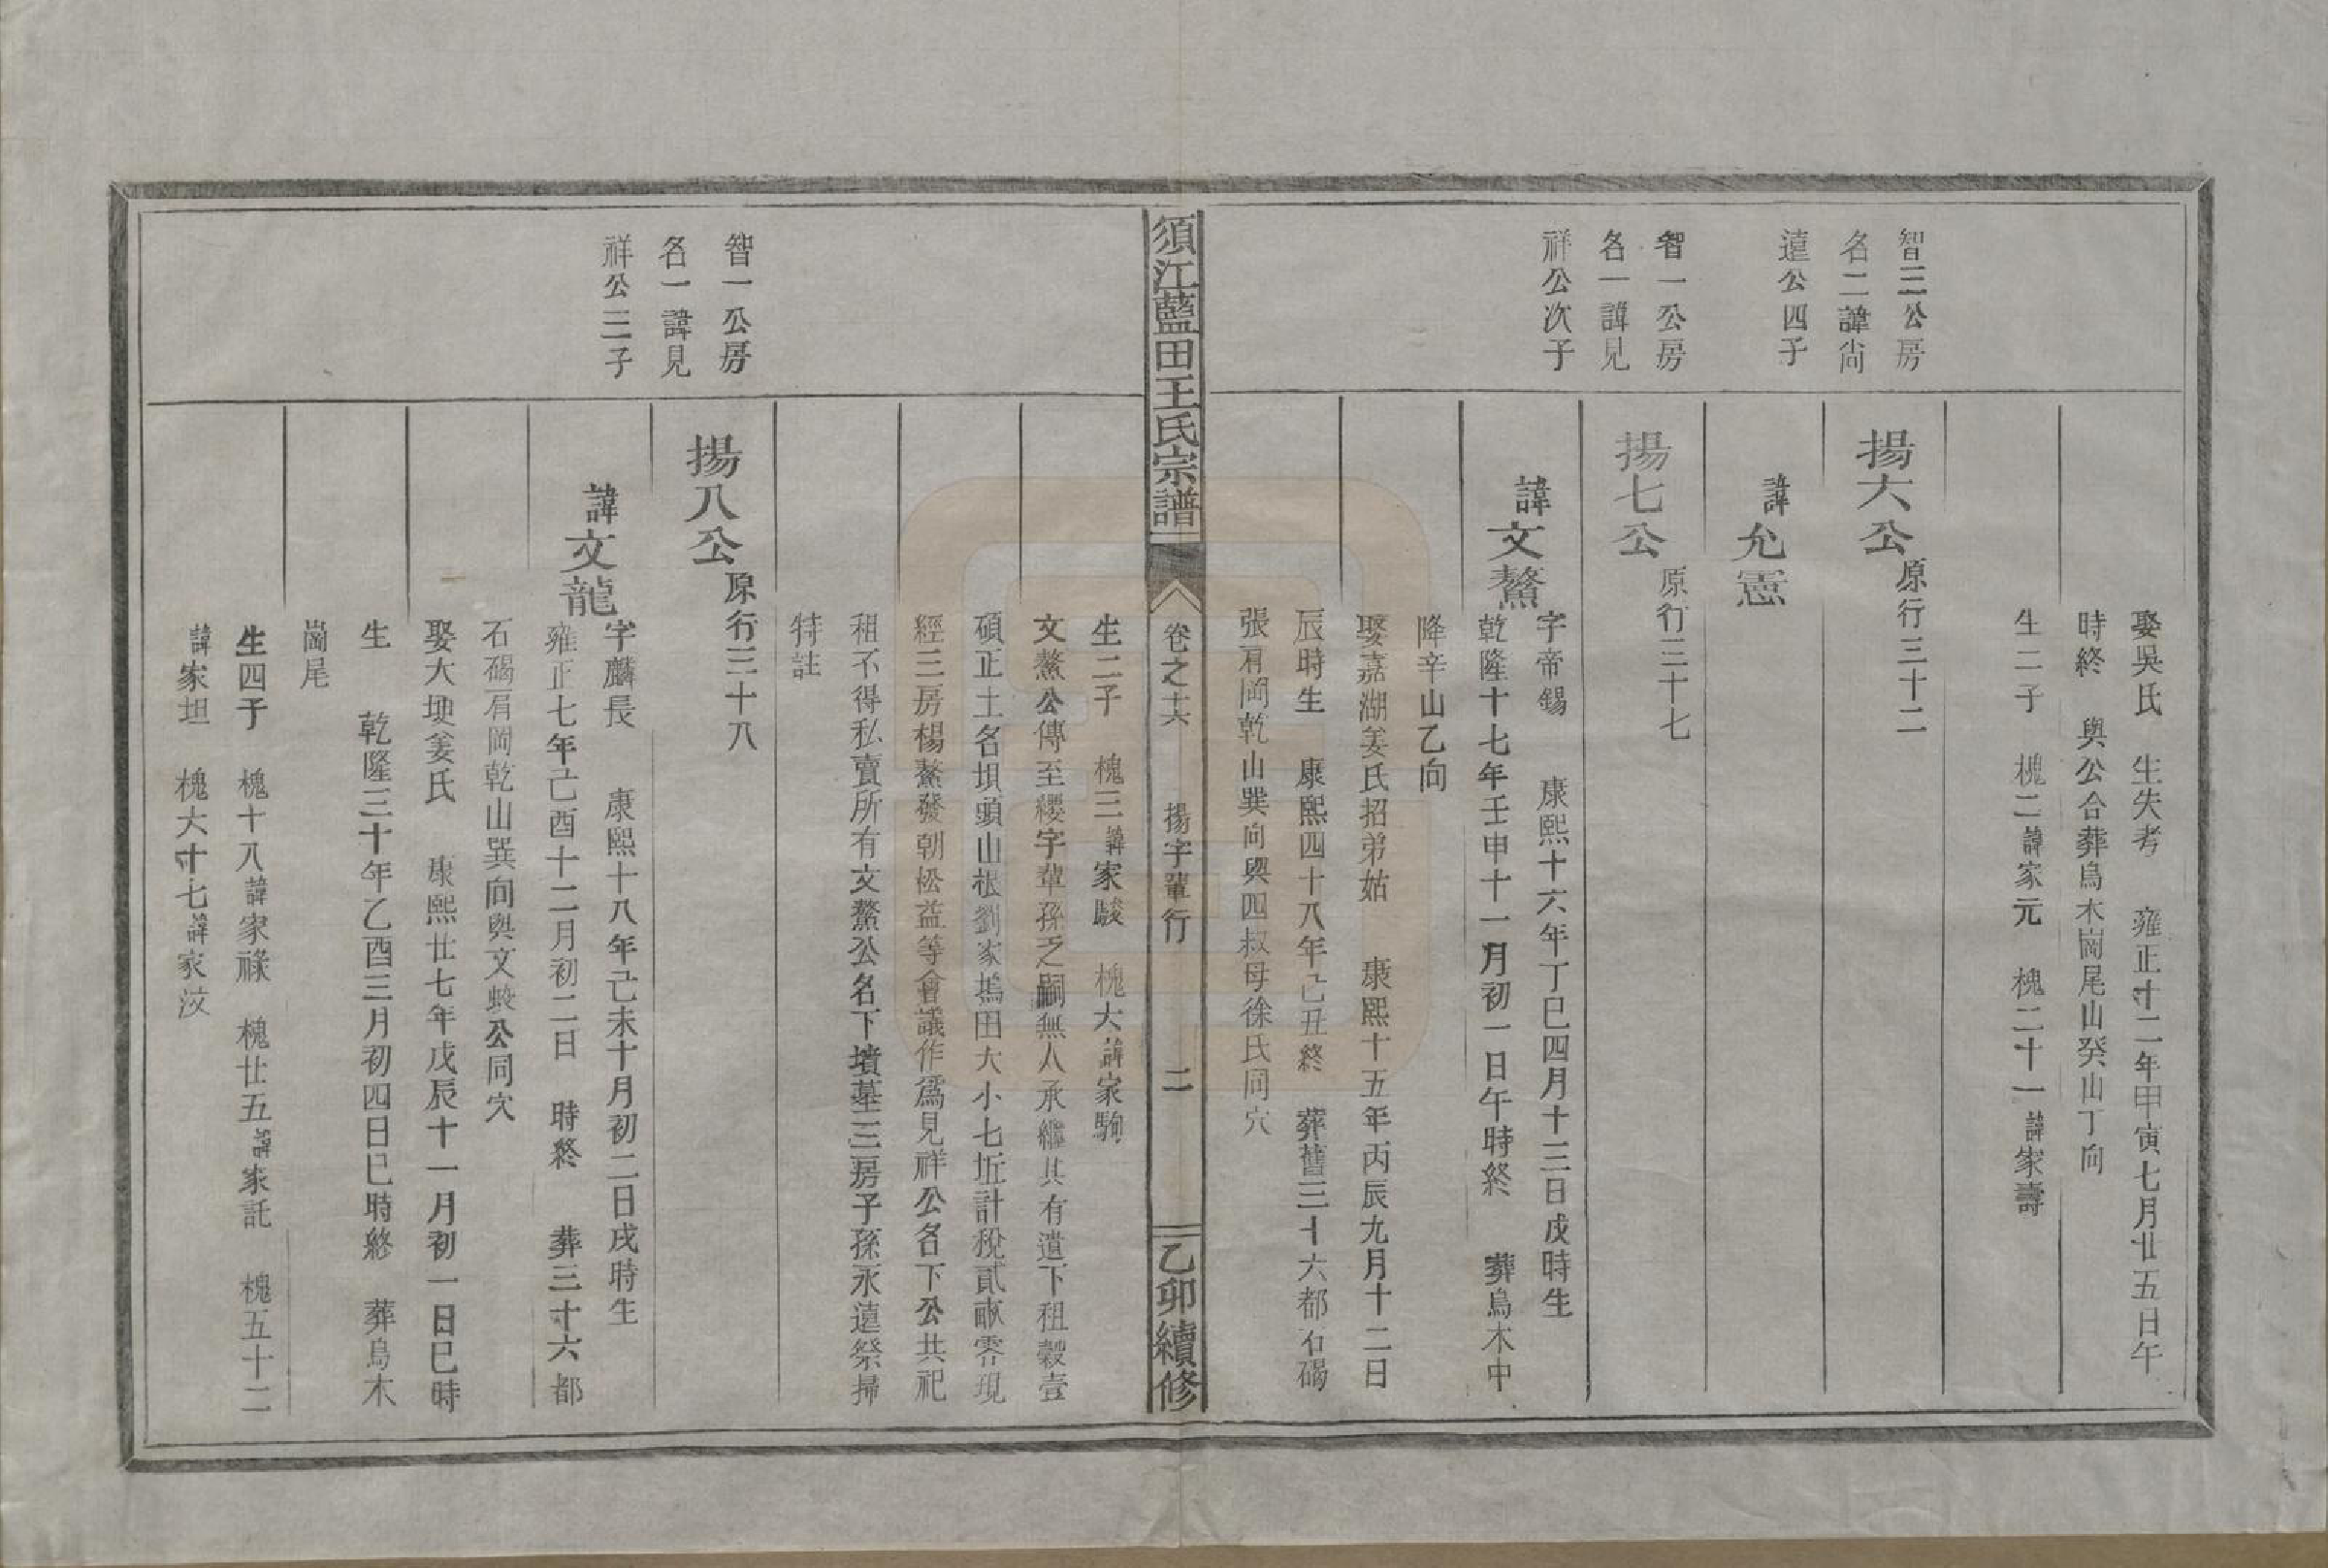 娶吳氏　生失考　雍正十二年甲寅七月廿五日午
時終　與公合葬烏木崗尾山癸山丁向
生二子　槐二諱家元　槐二十一諱家壽
智三公房
名二諱尙
遠公四子
揚六公原行三十二
諱允憲
智一公房
名一諱見
祥公次子
揚七公原行三十七
諱文鰲
字帝錫　康熙十六年丁巳四月十三日戍時生
乾隆十七年壬申十一月初一日午時終　葬烏木中
降辛山乙向
娶嘉湖姜氏招弟姑　康熙十五年丙辰九月十二日
辰時生　康熙四十八年己丑終　葬舊三十六都石碣
張肩岡乾山巽向與四叔母徐氏同穴
須江藍田王氏宗譜
卷之十六　揚字輩行　二
乙卯續修
生二子　槐三諱家駿　槐大諱家駒
文鰲公傳至纓字輩孫乏嗣無人承繼其有遺下租穀壹
碩正土名垻頭山根劉家塢田大小七坵計稅貳畝零現
經三房楊鰲發朝松益等會議作爲見祥公名下公共祀
租不得私賣所有文鰲公名下墳墓三房子孫永遠祭掃
特註
智一公房
名一諱見
祥公三子
揚八公原行三十八
諱文龍
字麟長　康熙十八年己未十月初二日戍時生
雍正七年己酉十二月初二日　時終　葬三十六都
石碣肩岡乾山巽向與文蛟公同穴
娶大埂姜氏　康熙廿七年戊辰十一月初一日巳時
生　乾隆三十年乙酉三月初四日巳時終　葬烏木
崗尾
生四子　槐十八諱家祿　槐廿五諱家託　槐五十二
諱家坦　槐大十七諱家汶